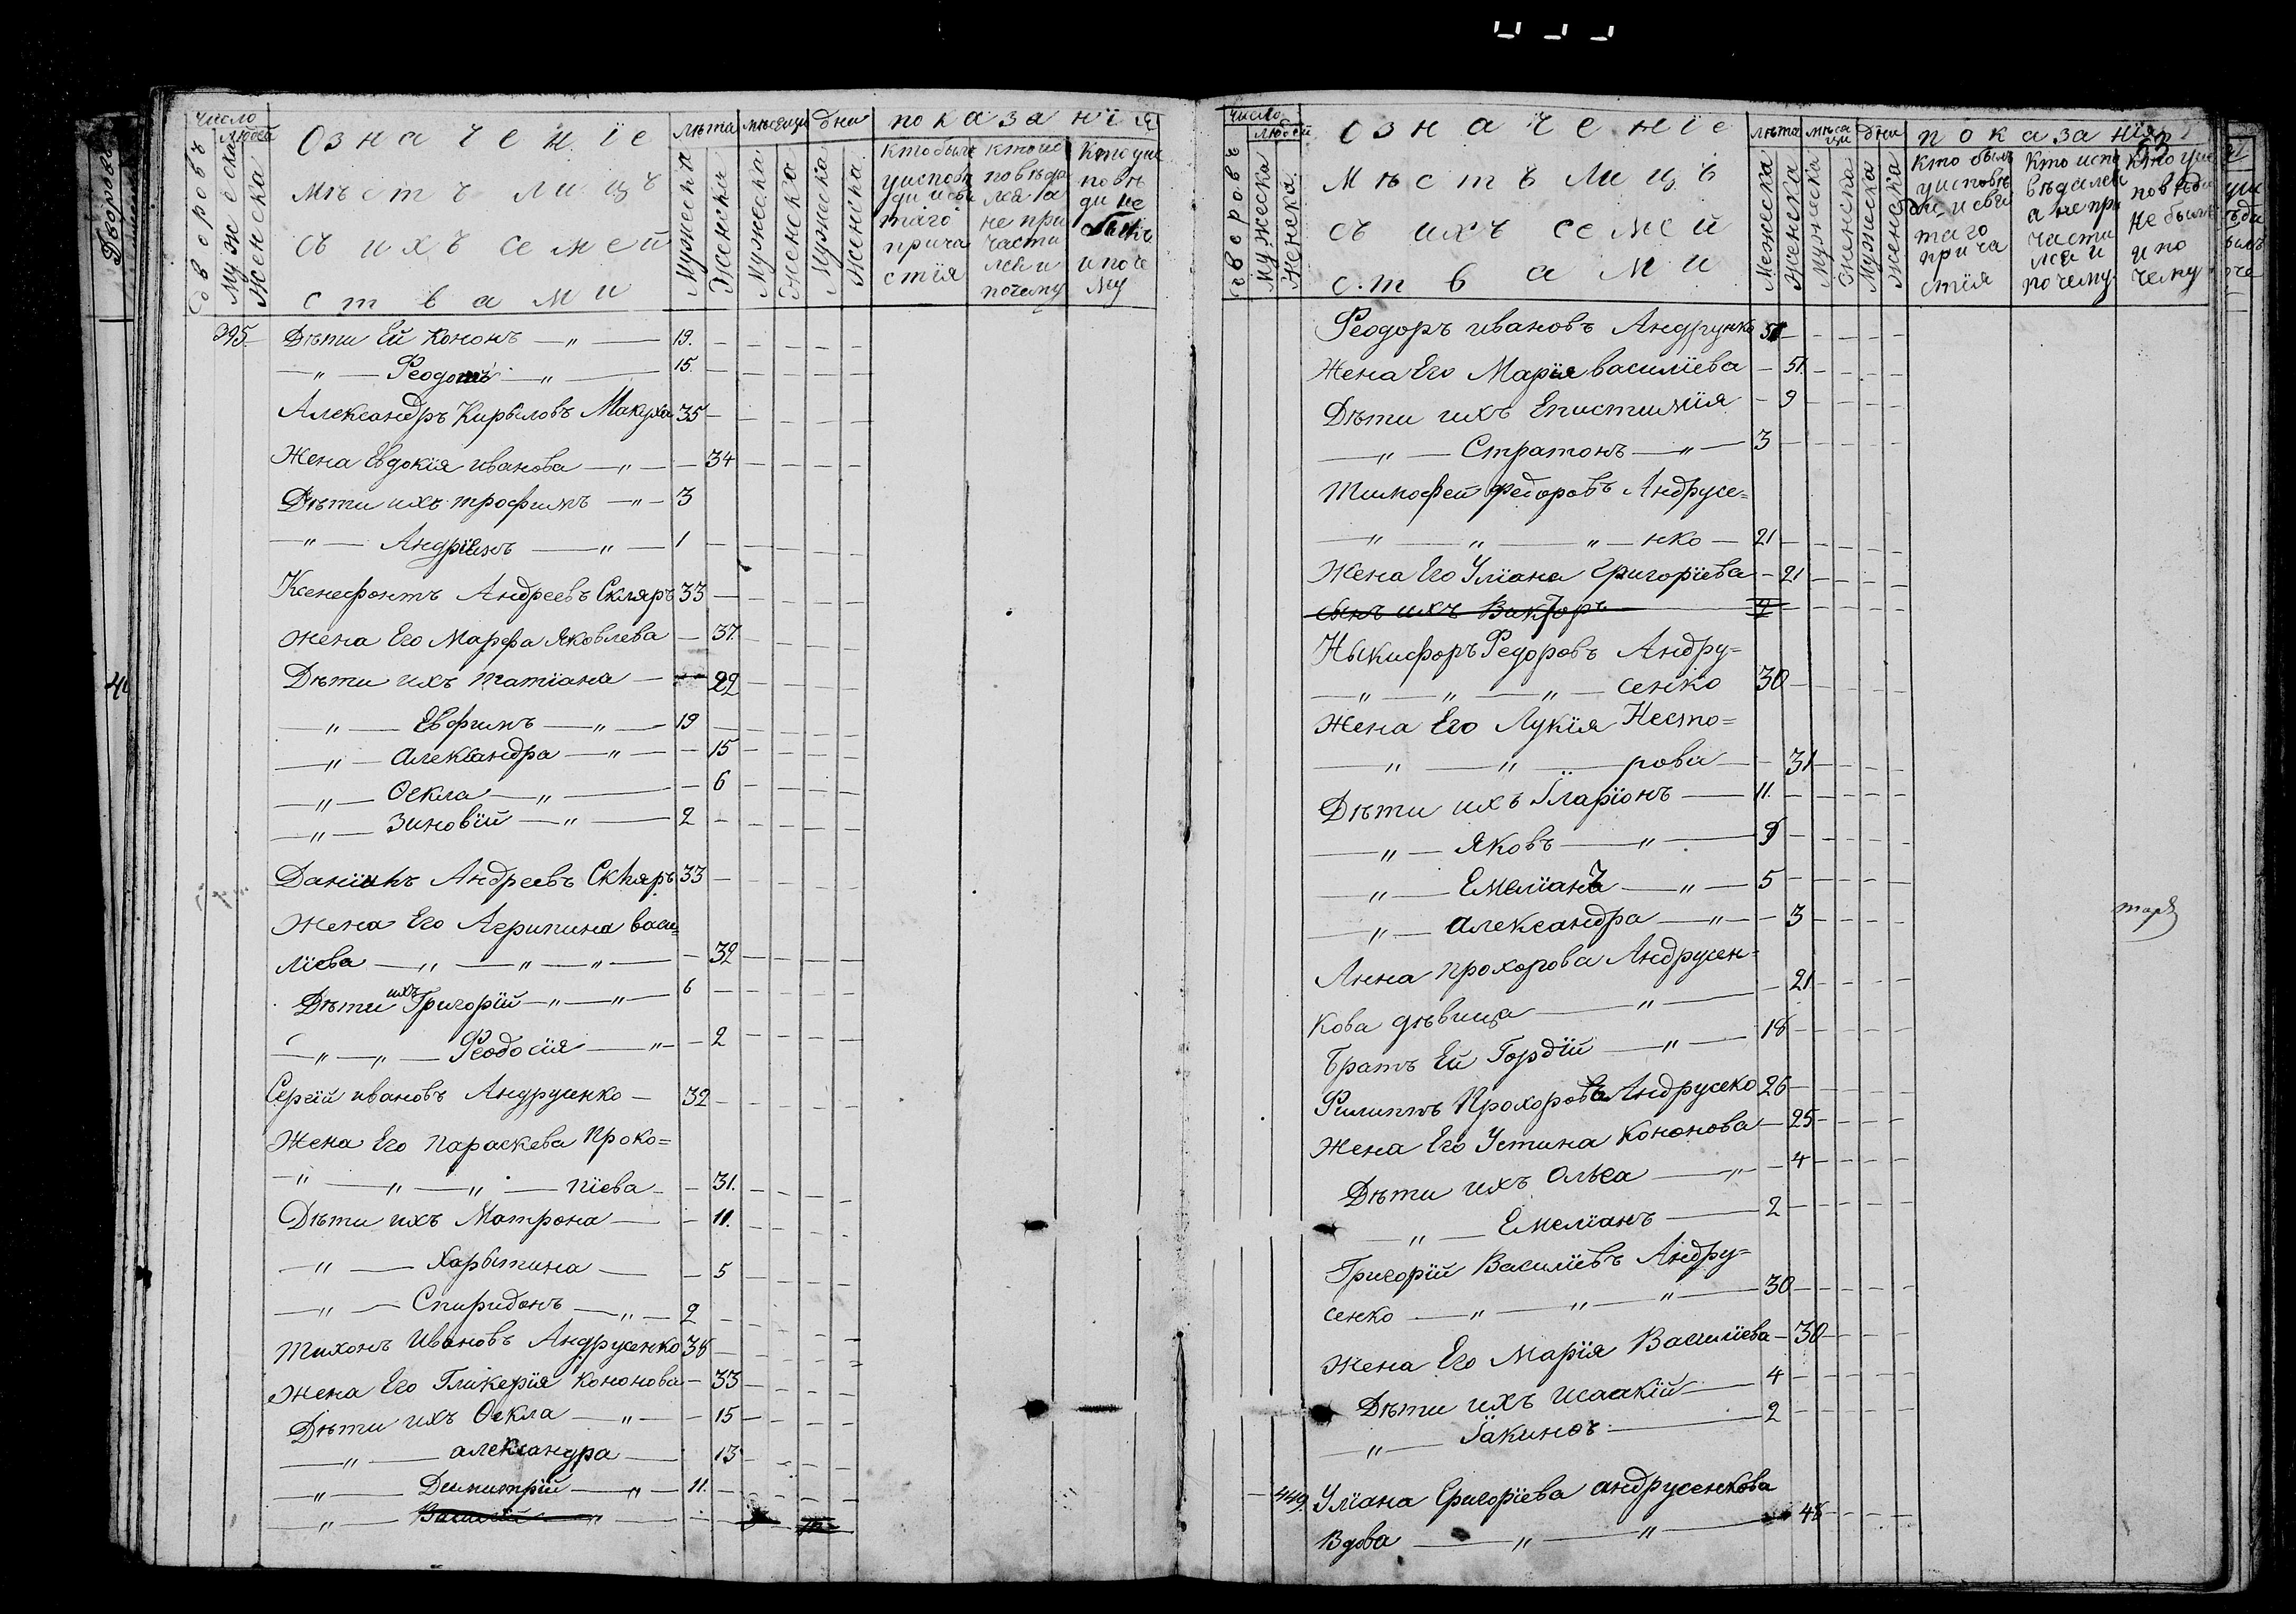 число
людей
Дворовъ
Мужеска
Женска
Означеніе
мѣстъ лицъ
съ ихъ семей
ствами
лѣта
мѣсяци
дни
показанїя
Мужеска
Женска
Мужеска
Женска
Мужска
Женска
кто былъ
у испове
ди и свя
таго
прича
стїя
кто ис
повѣда
лся а
не при
части
лся и
почему
Кто у ис
повѣ
ди не
былъ
и поче
му
395 Дѣти Ей Кононъ — „ — 19.
— „ — Феодотъ — „ — 15
Александръ Кирыловъ Макуха 35
Жена Евдокїя иванова — „ — 34
Дѣти ихъ трофимъ — „ — 3
— „ — Андрїанъ — „ — 1
Ксенофонтъ Андреевъ Скляръ 33
жена Его Марфа Яковлева — 37
Дѣти ихъ татїана — 22
— „ — Евфимъ — „ — 19
— „ — Александра — „ — 15
— „ — Ѳекла — „ — 6
— „ — Зиновїй — „ — 2
Данїилъ Андреевъ Скляръ 33
Жена Его Агрипина васи=
лїева — „ — „ — „ — 32
Дѣти ихъ Григорїй — „ — „ — 6
— „ — „ — Феодосїя — „ — 2
Сергїй ивановъ Андрусенко — 32
Жена Его параскева Проко=
— „ — „ — „ — пїева — 31.
Дѣти ихъ Матрона — 11.
— „ — Харытина — 5
— „ — Спиридонъ — „ — 2
Тихонъ Ивановъ Андрусенко 38
жена Его Гликерїя Кононова — 33
Дѣти ихъ Ѳекла — „ — 15
— „ — александра — 13
— „ — Димитрїй — „ — 11.
— „ — Василїй — „ —
число
людей
дворовъ
мужеска
Женска
означенїе
мѣстъ лицъ
съ ихъ семей
ствами
лѣта
мѣсяци
дни
показанїя
53
Межеска
Женска
Мужеска
Женска
Мужеска
Женска
Кто былъ
у исповѣ
ди и свя
таго
прича
стїя
Кто испо
вѣдался
а не при
части
лся и
почему
кто у ис
повѣди
не былъ
и по
чему
Феодоръ ивановъ Андрунко 51
Жена Его Марїя василїева — 51
Дѣти ихъ Епистимїя — 9
— „ — Стратонъ — „ — 3
Тимофей федоровъ Андрусе=
— „ — „ — „ — нко — 21
Жена Его Улїана Григорїева — 21
сынъ ихъ Викторъ — 2
Ныкифоръ Федоровъ Андру=
— „ — „ — „ — сенко 30
Жена Его Лукїя Несто=
— „ — „ — рова — 31
Дѣти ихъ Іларїонъ — 11.
— „ — Яковъ — „ — 9
— „ — Емелїанъ — „ — 5
— „ — Александра — „ — 3
Анна прохорова Андрусен=
кова дѣвица — „ — 21
Братъ Ей Гордїй — „ — 18
Филиппъ Прохоровъ Андрусеко 26
Жена Его Устина Кононова — 25
Дѣти ихъ Олга — „ — 4
— „ — Емелїанъ — 2
Григорїй Василїевъ Андру=
сенко — „ — „ — „ — 30
Жена Его Марїя Василїева — 30
Дѣти ихъ Исаакїй — 4
— „ — Іакинѳъ — 2
449. Улїана Григорїева андрусенкова
Вдова — „ — „ — 48